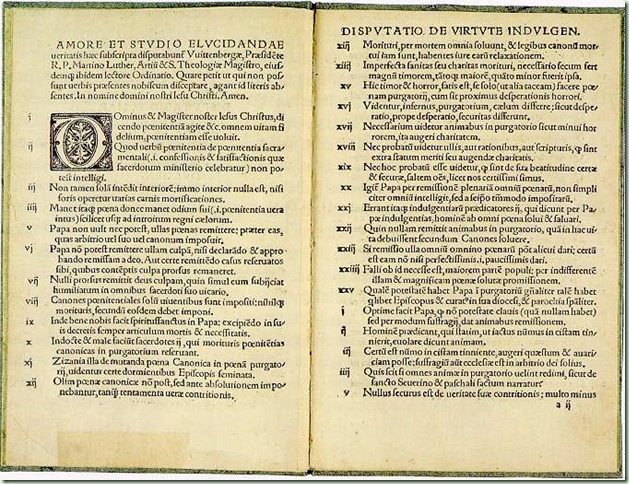 AMORE ET STVDIO ELVCIDANDAE
ueritatis hæc subscripta disputabunť Vuittenbergæ, Præsidẽte
R. P. Martino Luther, Artiũ & S. Theologiæ Magistro, eius-
demq; ibidem lectore Ordinario. Quare petit ut qui non pos-
sunt uerbis præsentes nobiscum disceptare, agant id literis ab-
sentes. In nomine domini nostri Iesu Christi. Amen.
i Ominus & Magister noster Iesus Christus, di-
cendo pœnitentiã agite &c. omnem uitam fi-
delium, pœnitentiam esse uoluit.
ij Quod uerbũ pœnitentia de pœnitentia sacra-
mentali (.i. confessionis & satisfactionis quæ
sacerdotum ministerio celebratur) non po-
test intelligi.
iij Non tamen solã intẽdit interiorẽ; immo interior nulla est, nisi
foris operetur uarias carnis mortificationes.
iiij Manet itaq; pœna donec manet odium sui (.i. pœnitentia uera
intus) scilicet usq; ad introitum regni cælorum.
v Papa non uult nec potest, ullas pœnas remittere; præter eas,
quas arbitrio uel suo uel canonum imposuit.
vj Papa nõ potest remittere ullam culpã, nisi declarãdo & appro-
bando remissam a deo. Aut certe remittẽdo casus reseruatos
sibi, quibus cõtemptis culpa prorsus remaneret.
vij Nulli prorsus remittit deus culpam, quin simul eum subijciat
humiliatum in omnibus sacerdoti suo uicario.
viij Canones pœnitentiales solũ uiuentibus sunt impositi; nihilq;
morituris, secundũ eosdem debet imponi.
ix Inde bene nobis facit spiritussanctus in Papa: excipiẽdo in su-
is decretis semper articulum mortis & necessitatis.
x Indocte & male faciũt sacerdotes ij, qui morituris pœnitẽtias
canonicas in purgatorium reseruant.
xj Zizania illa de mutanda pœna Canonica in pœnã purgato-
rij, uidentur certe dormientibus Episcopis seminata.
xij Olim pœnæ canonicæ nõ post, sed ante absolutionem impo-
nebantur, tanq̃ tentamenta ueræ contritionis.
DISPVTATIO DE VIRTVTE INDVLGEN.
xiij Morituri, per mortem omnia soluunt, & legibus canonũ mor-
tui iam sunt, habentes iure earũ relaxationem.
xiiij Imperfecta sanitas seu charitas morituri, necessario secum fert
magnũ timorem, tãtoq; maiorẽ, quãto minor fuerit ipsa.
xv Hic timor & horror, satis est, se solo (ut alia taceam) facere pœ-
nam purgatorij, cum sit proximus desperationis horrori.
xvj Videntur, infernus, purgatorium, cælum differre; sicut despe-
ratio, prope desperatio, securitas differunt.
xvij Necessarium uidetur animabus in purgatorio sicut minui hor-
rorem, ita augeri charitatem.
xviij Nec probatũ uidetur ullis, aut rationibus, aut scripturis, q̃ sint
extra statum meriti seu augendæ charitatis.
xix Nec hoc probatũ esse uidetur, q̃ sint de sua beatitudine certæ
& securæ, saltem oẽs, licet nos certissimi simus.
xx Igiť Papa per remissionẽ plenariã omniũ pœnarũ, non simpli
citer omniũ intelligit, sed a seipso tñmodo impositarũ.
xxj Errant itaq; indulgentiarũ prædicatores ij, qui dicunt per Pa-
pæ indulgentias, hominẽ ab omni pœna solui & saluari.
xxij Quin nullam remittit animabus in purgatorio, quã in hac ui-
ta debuissent secundum Canones soluere.
xxiij Si remissio ulla omniũ omnino pœnarũ põt alicui dari; certũ
est eam nõ nisi perfectissimis .i. paucissimis dari.
xxiiij Falli ob id necesse est, maiorem partẽ populi: per indifferentẽ
illam & magnificam pœnæ solutæ promissionem.
xxv Qualẽ potestatẽ habet Papa ĩ purgatoriũ gñaliter talẽ habet
q̃libet Episcopus & curatꝰ in sua diocesi, & parochia sp̃aliter.
i Optime facit Papa, q̃ nõ potestate clauis (quã nullam habet)
sed per modum suffragij, dat animabus remissionem.
ij Hominẽ prædicant, qui statim, ut iactus nũmus in cistam tin-
nierit, euolare dicunt animam.
iij Certũ est nũmo in cistam tinniente, augeri quæstum & auari-
ciam posse; suffragiũ aũt ecclesiæ est in arbitrio dei solius.
iiij Quis scit si omnes animæ in purgatorio uelint redimi, sicut de
sancto Seuerino & paschali factum narratur.
v Nullus securus est de ueritate suæ contritionis; multo minus
a ij